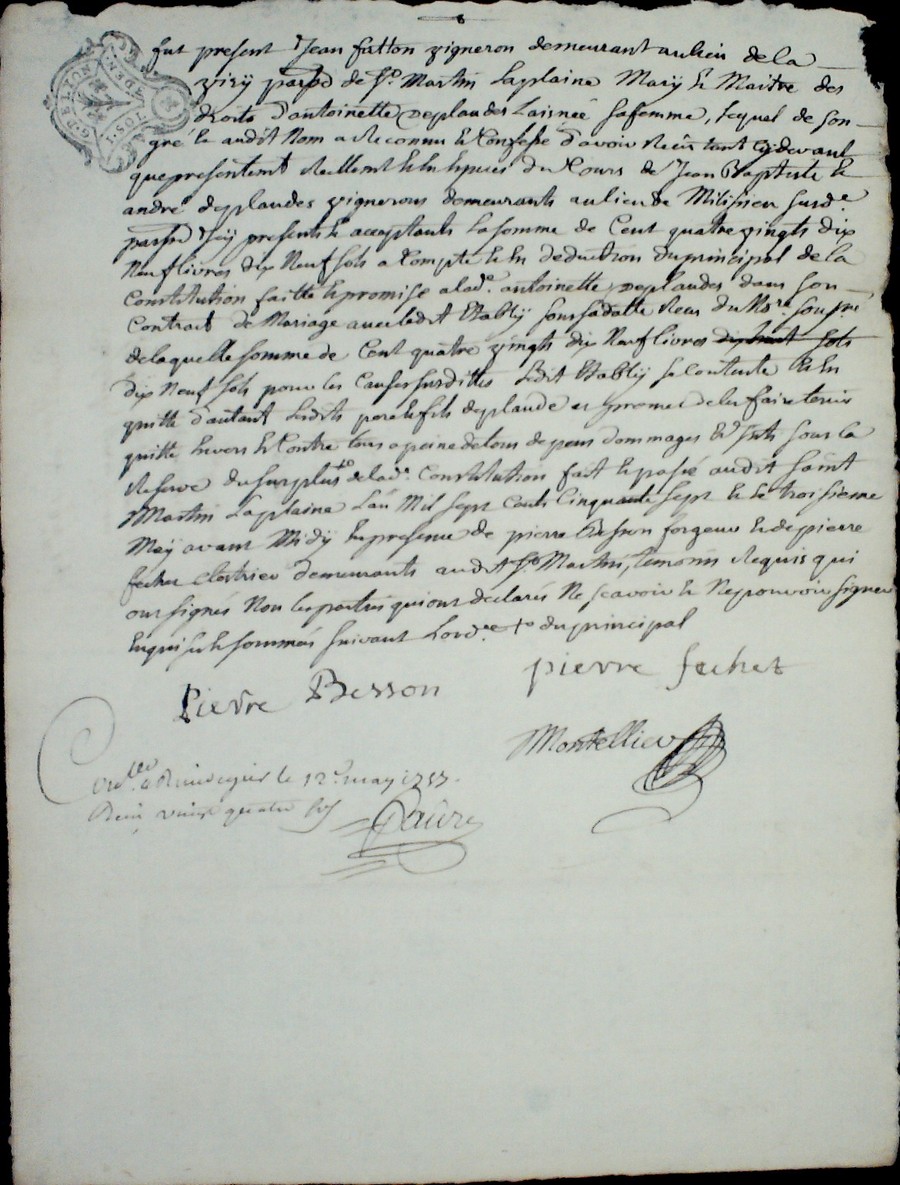 GENERALITE DE LYON
fut present Jean fatton vigneron demeurant au lieu de la
viry parsse de St. Martin Laplaine Mary & Maitre des
droits d'antoinette deplaudes Laisnée sa femme, lequel de son
gré & audit Nom a Reconnu & Confessé d'avoir Reçu tant cydevant
que presentemt Reellemt & en Especes du Cours de Jean Baptiste &
andré deplaudes vignerons demeurants au lieu de Milissieu susde
parsse Icy presents & acceptants La somme de Cent quatre vingts dix
Neuf livres dix Neuf sols a Compte & En deduction du principal de la
Constitution faitte & promise a lade. antoinette deplaudes dans son
Contrat de Mariage avec ledit Etably sous sa datte Receu du Nore. sousné
de laquelle somme de Cent quatre vingts dix Neuf livres dix huit sols
dix Neuf sols pour les Causes susdittes Ledit Etably se contente & En
quitte d'autant Lesdits pere & fils deplaude et promet de les faire tenir
quitte Envers & Contre tous a peine de tous depens dommages & Jnts sous la
Reserve du surplus +o de lade. Constitution fait & passé audit saint
Martin Laplaine L'an Mil sept Cents Cinquante sept & le troisieme
May avant Midy En presence de pierre Besson forgeur & de pierre
fechet demeurants audit St. Martin, temoins Requis qui
ont signés Non les parties qui ont declarés Ne sçavoir & Ne pouvoir signer
Enquises & sommées suivant L'ordce. +o du principal
Pierre Besson
pierre fechet
Montellier
Conllé a Rivedegier le 12e may 1757.
Reçu vingt quatre sols
Faure